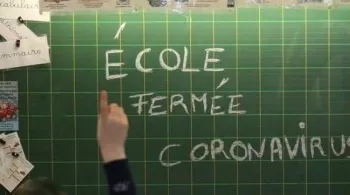 ÉCOLE
FERMÉE
CORONAVIRUS